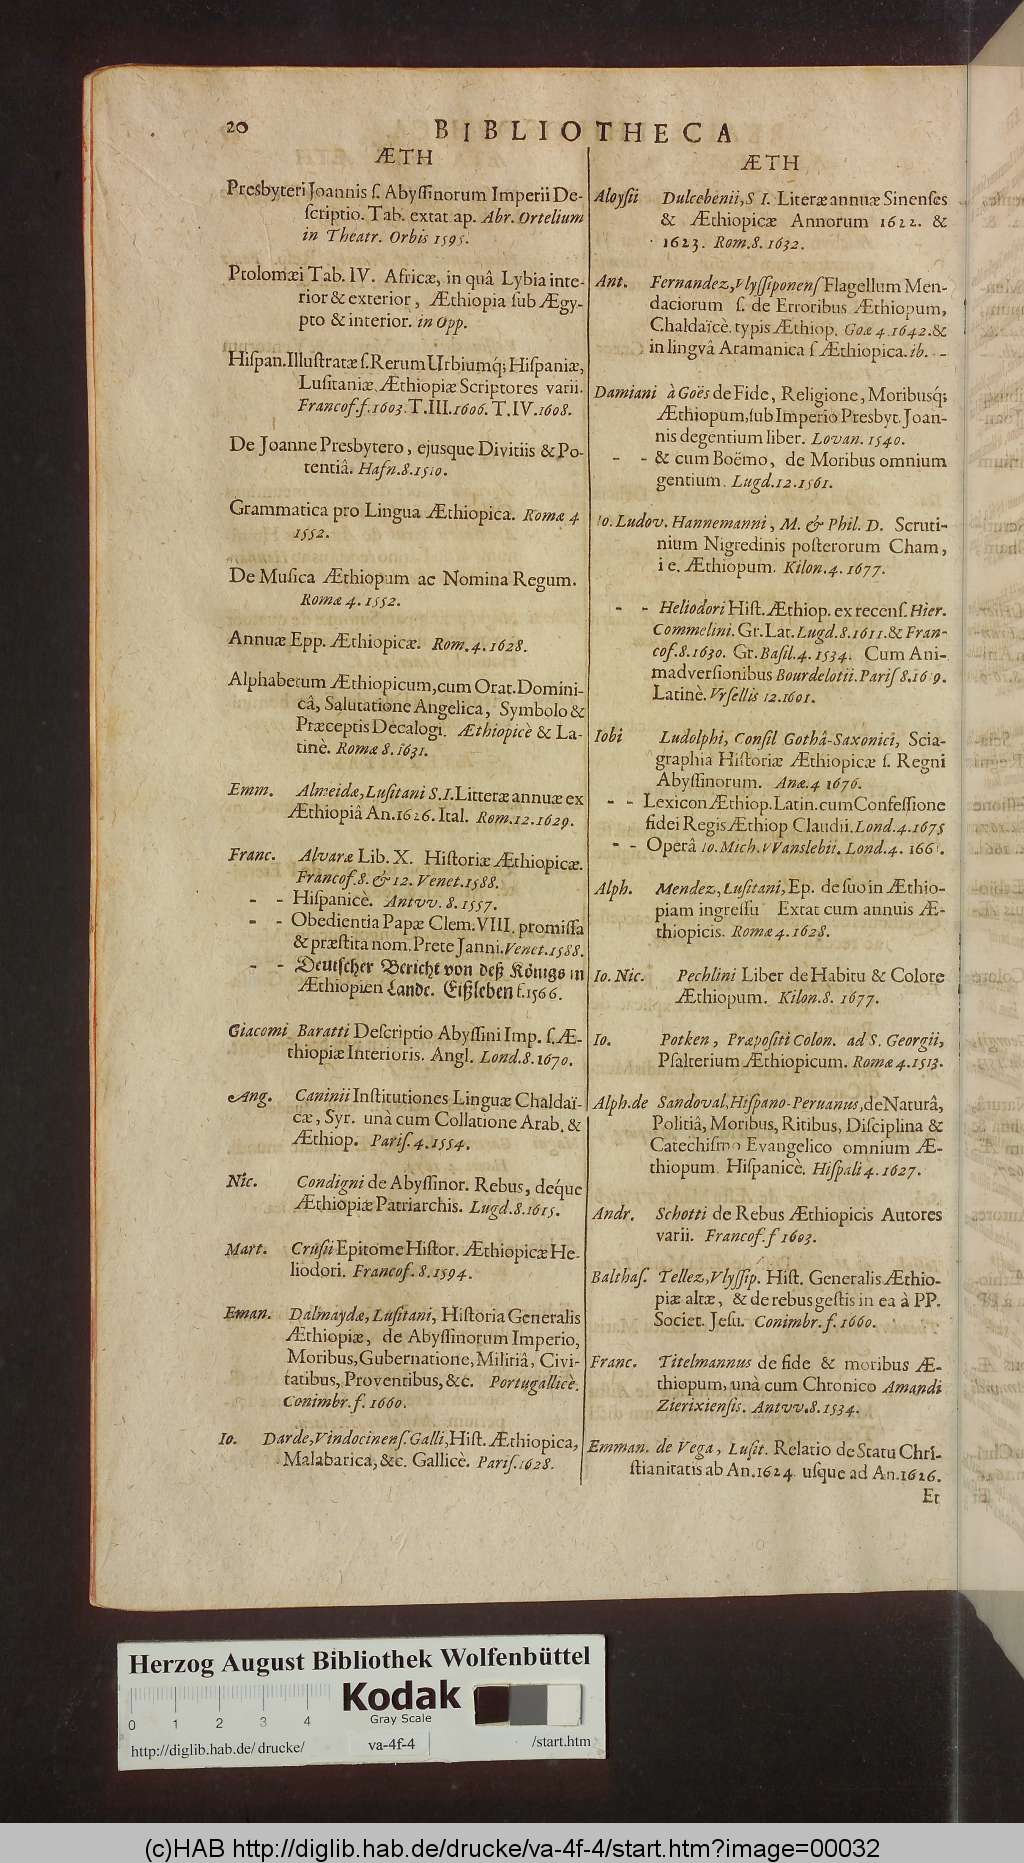 20
BIBLIOTHECA
ÆTH
Presbyteri Joannis ſ. Abyſſinorum Imperii De-
ſcriptio. Tab. extat ap. Abr. Ortelium
in Theatr. Orbis 1595.
Ptolomæi Tab. IV. Africæ, in quâ Lybia inte-
rior & exterior, Æthiopia ſub Ægy-
pto & interior. in Opp.
Hiſpan. Illuſtratæ ſ. Rerum Urbiumq́; Hiſpaniæ,
Luſitaniæ, Æthiopiæ Scriptores varii.
Francof. f. 1603. T. III. 1606. T. IV. 1608.
De Joanne Presbytero, ejusque Divitiis & Po-
tentiâ. Hafn. 8. 1510.
Grammatica pro Lingua Æthiopica. Romæ 4
1552.
De Muſica Æthiopum ac Nomina Regum.
Romæ 4. 1552.
Annuæ Epp. Æthiopicæ. Rom. 4. 1628.
Alphabetum Æthiopicum, cum Orat. Domini-
câ, Salutatione Angelica, Symbolo &
Præceptis Decalogi. Æthiopicè & La-
tinè. Romæ 8. 1631.
Emm. Almeidæ, Luſitani S. I. Litteræ annuæ ex
Æthiopiâ An. 1626. Ital. Rom. 12. 1629.
Franc. Alvaræ Lib. X. Hiſtoriæ Æthiopicæ.
Francof. 8. & 12. Venet. 1588.
- - Hiſpanicè. Antvv. 8. 1557.
- - Obedientia Papæ Clem. VIII. promiſſa
& præſtita nom. Prete Janni. Venet. 1588.
- - Deutſcher Bericht von deß Königs in
Æthiopien Lande. Eißleben f. 1566.
Giacomi Baratti Deſcriptio Abyſſini Imp. ſ. Æ-
thiopiæ Interioris. Angl. Lond. 8. 1670.
Ang. Caninii Inſtitutiones Linguæ Chaldaï-
cæ, Syr. unà cum Collatione Arab. &
Æthiop. Pariſ. 4. 1554.
Nic. Condigni de Abyſſinor. Rebus, deq́ue
Æthiopiæ Patriarchis. Lugd. 8. 1615.
Mart. Cruſii Epitome Hiſtor. Æthiopicæ He-
liodori. Francof. 8. 1594.
Eman. Dalmaydæ, Luſitani, Hiſtoria Generalis
Æthiopiæ, de Abyſſinorum Imperio,
Moribus, Gubernatione, Militiâ, Civi-
tatibus, Proventibus, &c. Portugallicè.
Conimbr. f. 1660.
Io. Darde, Vindocinenſ. Galli, Hiſt. Æthiopica,
Malabarica, &c. Gallicè. Pariſ. 1628.
ÆTH
Aloyſii Dulcebenii, S I. Literæ annuæ Sinenſes
& Æthiopicæ Annorum 1622. &
1623. Rom. 8. 1632.
Ant. Fernandez, Vlyſſiponenſ Flagellum Men-
daciorum ſ. de Erroribus Æthiopum,
Chaldaïcè. typis Æthiop. Goæ 4. 1642. &
in linguâ Aramanica ſ Æthiopica. ib. - -
Damiani à Goës de Fide, Religione, Moribusq́;
Æthiopum, ſub Imperio Presbyt. Joan-
nis degentium liber. Lovan. 1540.
- - & cum Boëmo, de Moribus omnium
gentium. Lugd. 12. 1561.
Io. Ludov. Hannemanni, M. & Phil. D. Scruti-
nium Nigredinis poſterorum Cham,
i e. Æthiopum. Kilon. 4. 1677.
- - Heliodori Hiſt. Æthiop. ex recenſ. Hier.
Commelini. Gr. Lat. Lugd. 8. 1611. & Fran-
cof. 8. 1630. Gr. Baſil. 4. 1534. Cum Ani-
madverſionibus Bourdelotii. Pariſ 8.
Latinè. Vrſellis 12. 1601.
Iobi Ludolphi, Conſil Gothâ-Saxonici, Scia-
graphia Hiſtoriæ Æthiopicæ ſ. Regni
Abyſſinorum. 4 1676.
- - Lexicon Æthiop. Latin. cum Confeſſione
fidei Regis Æthiop Claudii. Lond. 4. 1675
- - Operâ Io. Mich. VVanslebii. Lond. 4. 1661.
Alph. Mendez, Luſitani, Ep. de ſuo in Æthio-
piam ingreſſu Extat cum annuis Æ-
thiopicis. Romæ 4. 1628.
Io. Nic. Pechlini Liber de Habitu & Colore
Æthiopum. Kilon. 8. 1677.
Io. Potken, Præpoſiti Colon. ad S. Georgii,
Pſalterium Æthiopicum. Romæ 4. 1513.
Alph. de Sandoval, Hiſpano-Peruanus, de Naturâ,
Politiâ, Moribus, Ritibus, Diſciplina &
Catechiſmo Evangelico omnium Æ-
thiopum. Hiſpanicè. Hiſpali 4. 1627.
Andr. Schotti de Rebus Æthiopicis Autores
varii. Francof. f 1603.
Balthaſ. Tellez, Vlyſſip. Hiſt. Generalis Æthio-
piæ altæ, & de rebus geſtis in ea à PP.
Societ. Jeſu. Conimbr. f. 1660.
Franc. Titelmannus de fide & moribus Æ-
thiopum, unà cum Chronico Amandi
Zierixienſis. Antvv. 8. 1534.
Emman. de Vega, Luſit. Relatio de Statu Chri-
ſtianitatis ab An. 1624. uſque ad An. 1626.
Et
Herzog August Bibliothek Wolfenbüttel
Kodak
Gray Scale
0 1 2 3 4
http://diglib.hab.de/drucke/
va-4f-4
/start.htm
(c)HAB http://diglib.hab.de/drucke/va-4f-4/start.htm?image=00032